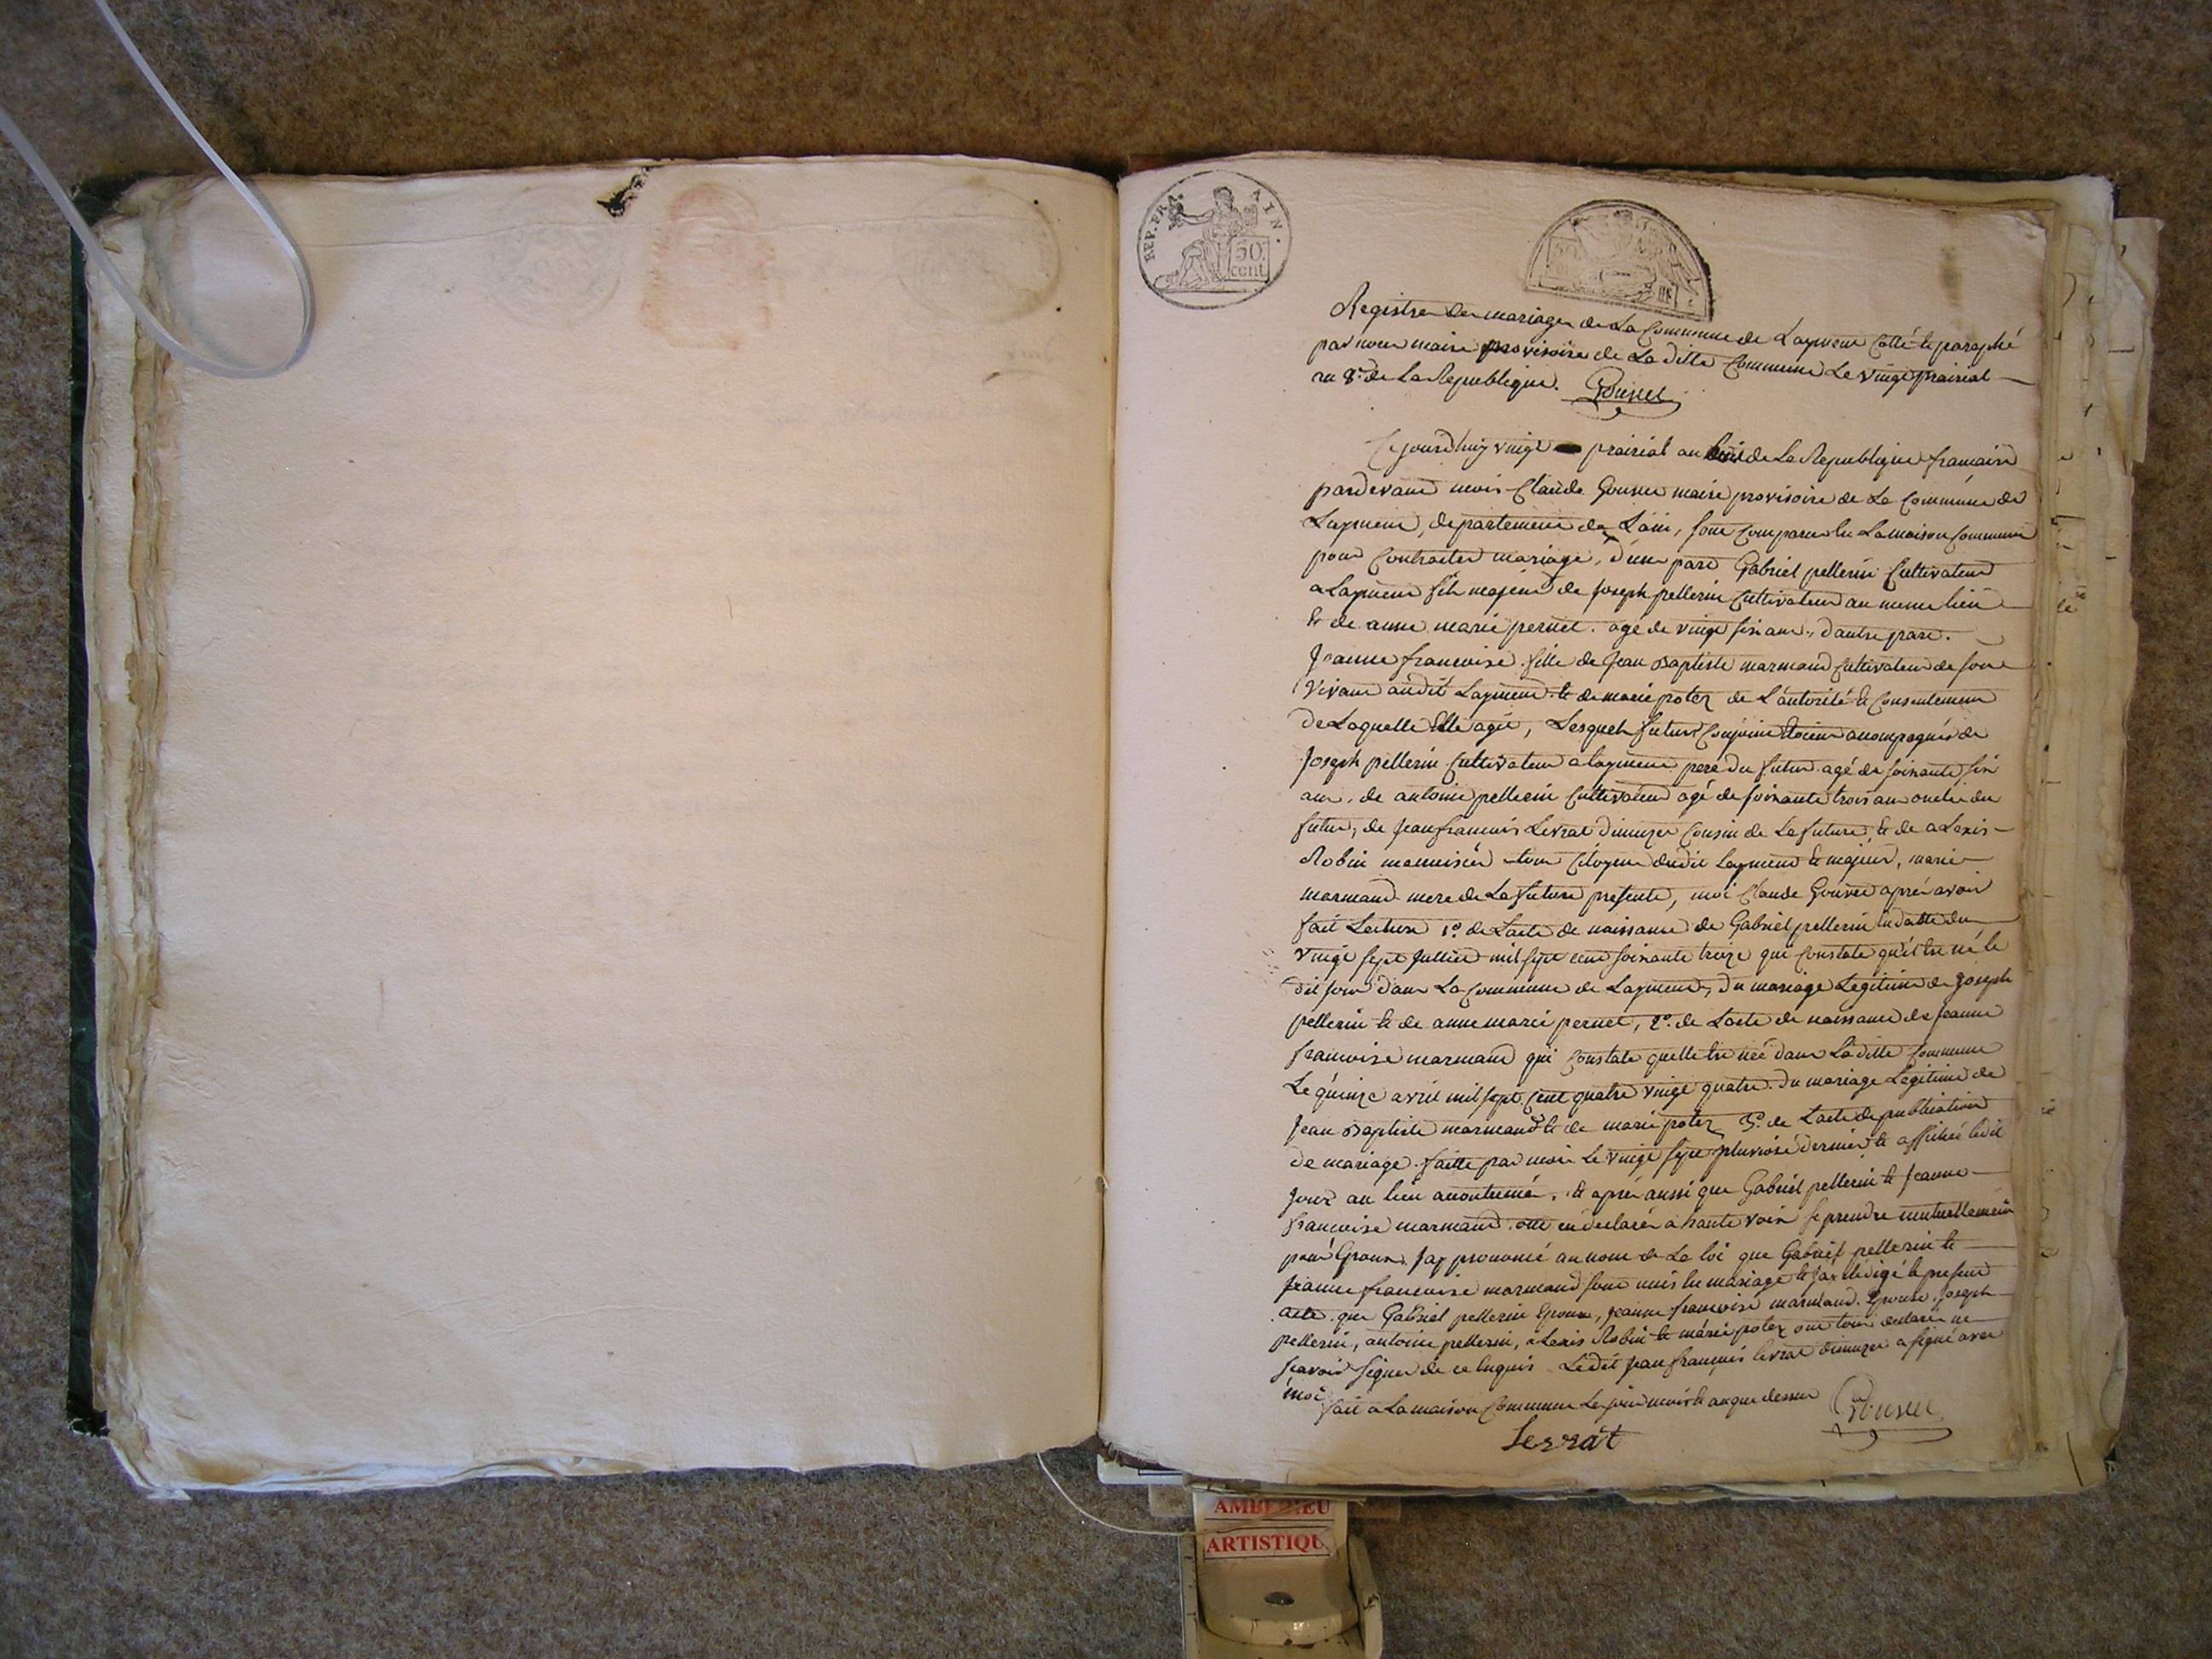 REP. FRA. AIN.
50 cent.
Registre des mariages de La Commune de Laymene Cotté et paraphé
par nous maire provisoire de La ditte Commune Le vingt prairial
an 8.e de La Republique. Gouvee
Cejourdhuy vingt prairial an huit de La Republique francaise
pardevant moi Claude Gouvee maire provisoire de La Commune de
Laymene, departement de Lain, sont comparus en La maison Commune
pour Contracter mariage, d'une part Gabriel pellerin Cultivateur
a Laymene fils majeur de Joseph pellerin Cultivateur au meme lieu
et de anne marie pernet. agé de vingt six ans, d'autre part.
Jeanne francoise fille de Jean Baptiste marmand Cultivateur de son
vivant audit Laymene et de marie potez de L'autorité et Consentement
de Laquelle Elle agit, Lesquels futurs Conjoints étoient accompagnés de
Joseph pellerin Cultivateur a laymene pere du futur agé de soixante six
ans, de antoine pellerin Cultivateur agé de soixante trois ans oncle du
futur, de Jean francois Levrat Cousin de La future, et de aLexis
Robin menuisier tous Citoyens dudit Laymene et majeurs, marie
marmand mere de La future presente, moi Claude Gouvee aprés avoir
fait Lecture 1.o de Lacte de naissance de Gabriel pellerin en datte du
vingt sept Juillet mil sept cent soixante treize qui Constate qu'il est né le
dit jour dans La Commune de Laymene, du mariage Legitime de Joseph
pellerin et de anne marie pernet, 2.o de Lacte de naissance de Jeanne
francoise marmand qui Constate quelle est née dans Laditte Commune
Le quinze avril mil sept Cent quatre vingt quatre du mariage Legitime de
Jean Baptiste marmand et de marie potez 3.o de Lacte de publication
de mariage faitte par moi Le vingt sept pluviose dernier et affichée ledit
Jour au lieu accoutumé, et aprés aussi que Gabriel pellerin et Jeanne
francoise marmand ont eu declaré a haute voix se prendre mutuellement
pour Epoux. J'ay prononcé au nom de La loi que Gabriel pellerin et
Jeanne francoise marmand sont unis en mariage et j'ay redigé le present
acte que Gabriel pellerin Epoux, Jeanne francoise marmand Epouse, Joseph
pellerin, antoine pellerin, aLexis Robin et marie potez ont tous declaré ne
scavoir signer de ce Enquis Ledit Jean françois levrat a signé avec
moi
fait a La maison Commune Les jour mois et an que dessus Gouvee
Levrat
AMBERIEU
ARTISTIQU